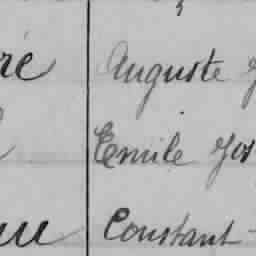 ré Auguste J
Emile Jos
Constant